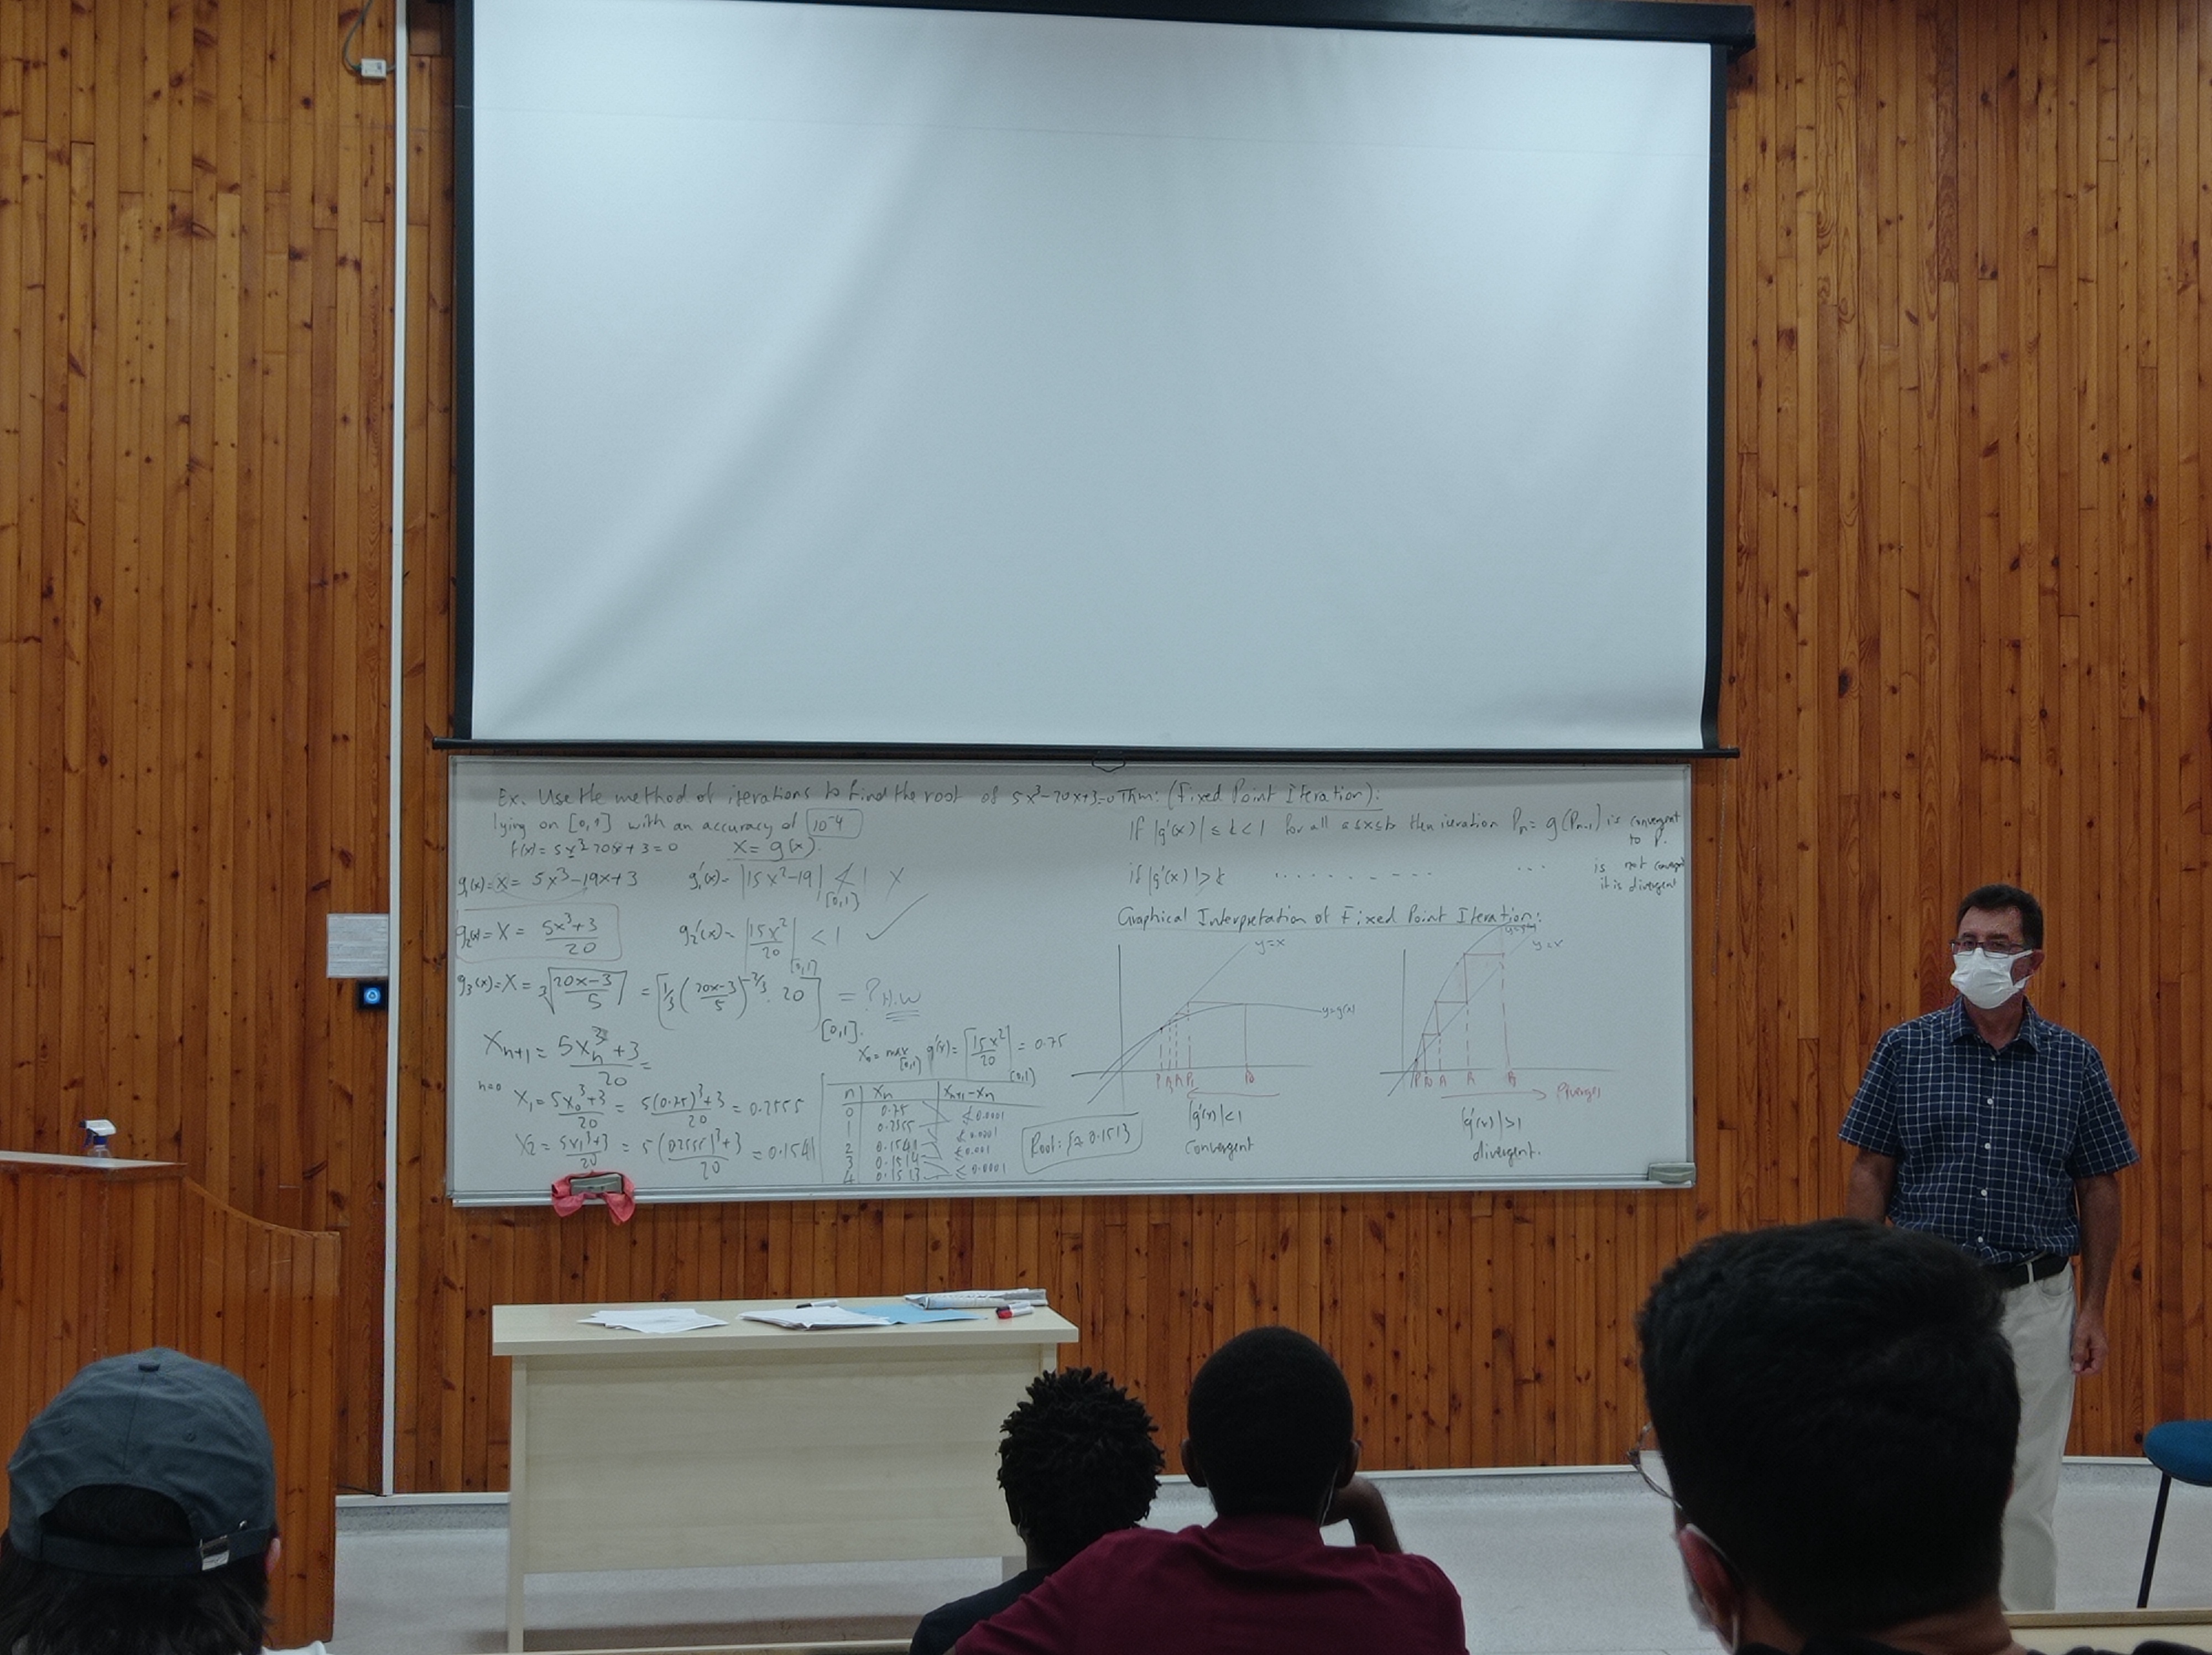 Ex. Use the method of iterations to find the root of 5x³-20x+3=0
lying on [0,1] with an accuracy of 10⁻⁴
f(x)=5x³-20x+3=0 x=g(x).
g₁(x)=x=5x³-19x+3 g₁'(x)=|15x²-19| ≮ 1 X
[0,1]
g₂(x)=X=(5x³+3)/20 g₂'(x)=|15x²/20| < 1 ✓
[0,1]
g₃(x)=X=∛((20x-3)/5) = [1/3((20x-3)/5)^(-2/3) · 20] = ? H.W
[0,1].
Xₙ₊₁ = (5Xₙ³+3)/20 =
X₀ = max g'(x) = |15x²/20| = 0.75
[0,1] [0,1]
n=0 X₁ = (5X₀³+3)/20 = (5(0.75)³+3)/20 = 0.2555
X₂ = (5X₁³+3)/20 = (5(0.2555)³+3)/20 = 0.1541
n Xₙ Xₙ₊₁-Xₙ
0 0.75
1 0.2555
2 0.1541
3 0.1514
4 0.1513 ≤ 0.0001
Root: {≈ 0.151}
Thm: (Fixed Point Iteration):
If |g'(x)| ≤ k < 1 for all a≤x≤b then iteration Pₙ = g(Pₙ₋₁) is convergent
to P.
if |g'(x)| > k - - - - - - - - - - - is not converg
it is divergent
Graphical Interpretation of Fixed Point Iteration:
y=x
y=g(x)
P P₁ P₀
|g'(x)|<1
convergent
y=g(x)
y=x
Diverges
|g'(x)|>1
divergent.